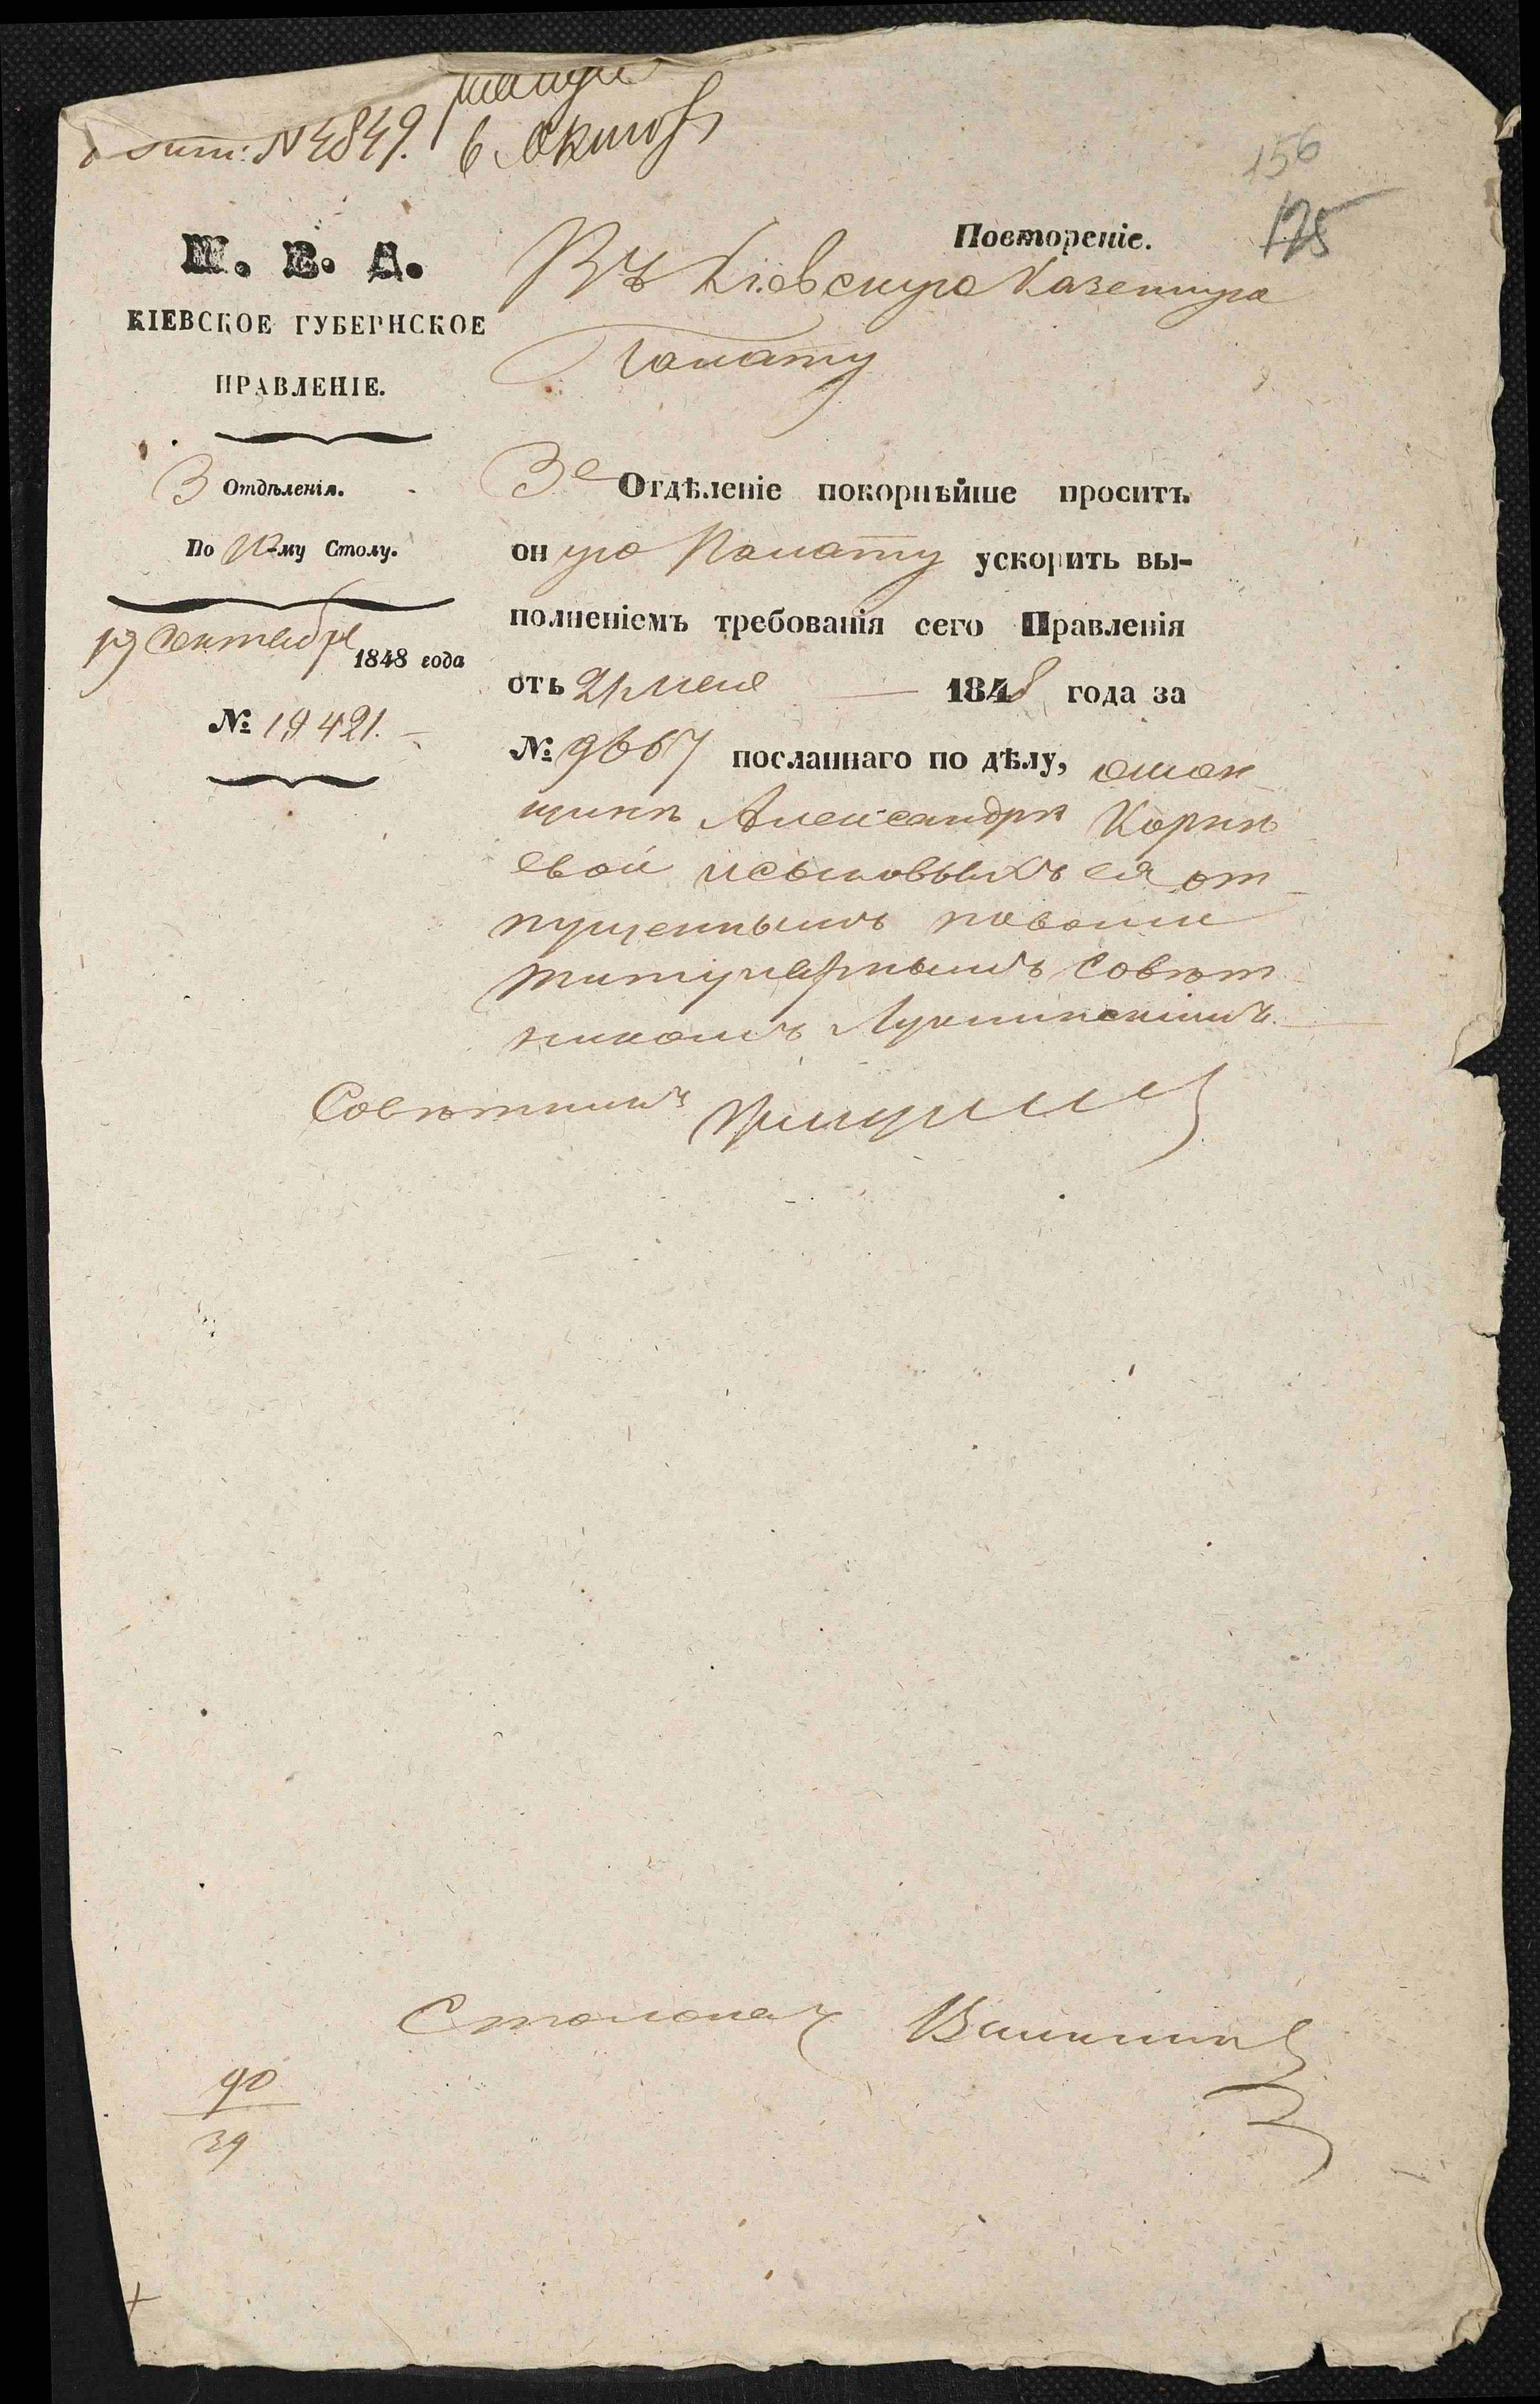 № 4849.
6 Октяб
156
125
М. В. Д.
КІЕВСКОЕ ГУБЕРНСКОЕ
ПРАВЛЕНІЕ.
3 Отдѣленія.
По му Столу.
19 Сентября 1848 года
№ 19421.
Повтореніе.
Въ Кіевскую Казенную
Палату
3е Отдѣленіе покорнѣйше проситъ
оную Палату ускорить вы-
полненіемъ требованія сего Правленія
отъ 21 мая 1848 года за
№ 9667 посланнаго по дѣлу,
Александрѣ Корнѣ
евой и сыновьяхъ ея от
пущенныхъ на волю
титулярнымъ Совѣт
никомъ
Совѣтникъ
Столонач
90
39